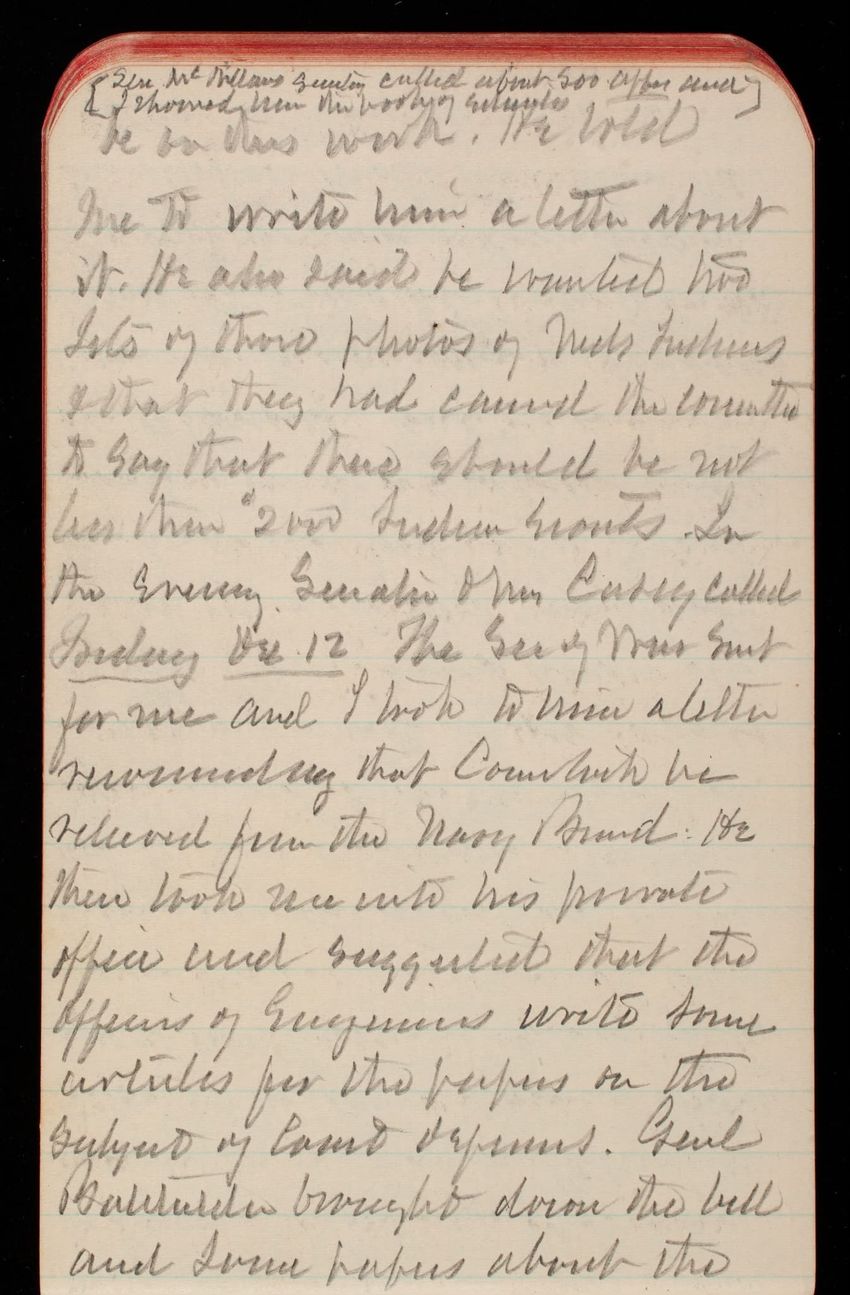 [Sen. McMillans Secretary called about 500 after and]
[I showed him the book of
be on this work. He told
me to write him a letter about
it. He also said he wanted two
Sets of those photos of Neds Indians
& that they had caused the committee
to say that there should be not
less than 2000 Indian Scouts. In
the Evening Senator & Mrs Casey called
Friday Dec 12 The Sec of War Sent
for me and I took to him a letter
recommending that Comstock be
relieved from the Navy Board: He
then took me into his private
office and suggested that the
Officers of Engineers write some
articles for the papers on the
subject of Coast defenses. Genl
brought down the bill
and some papers about the